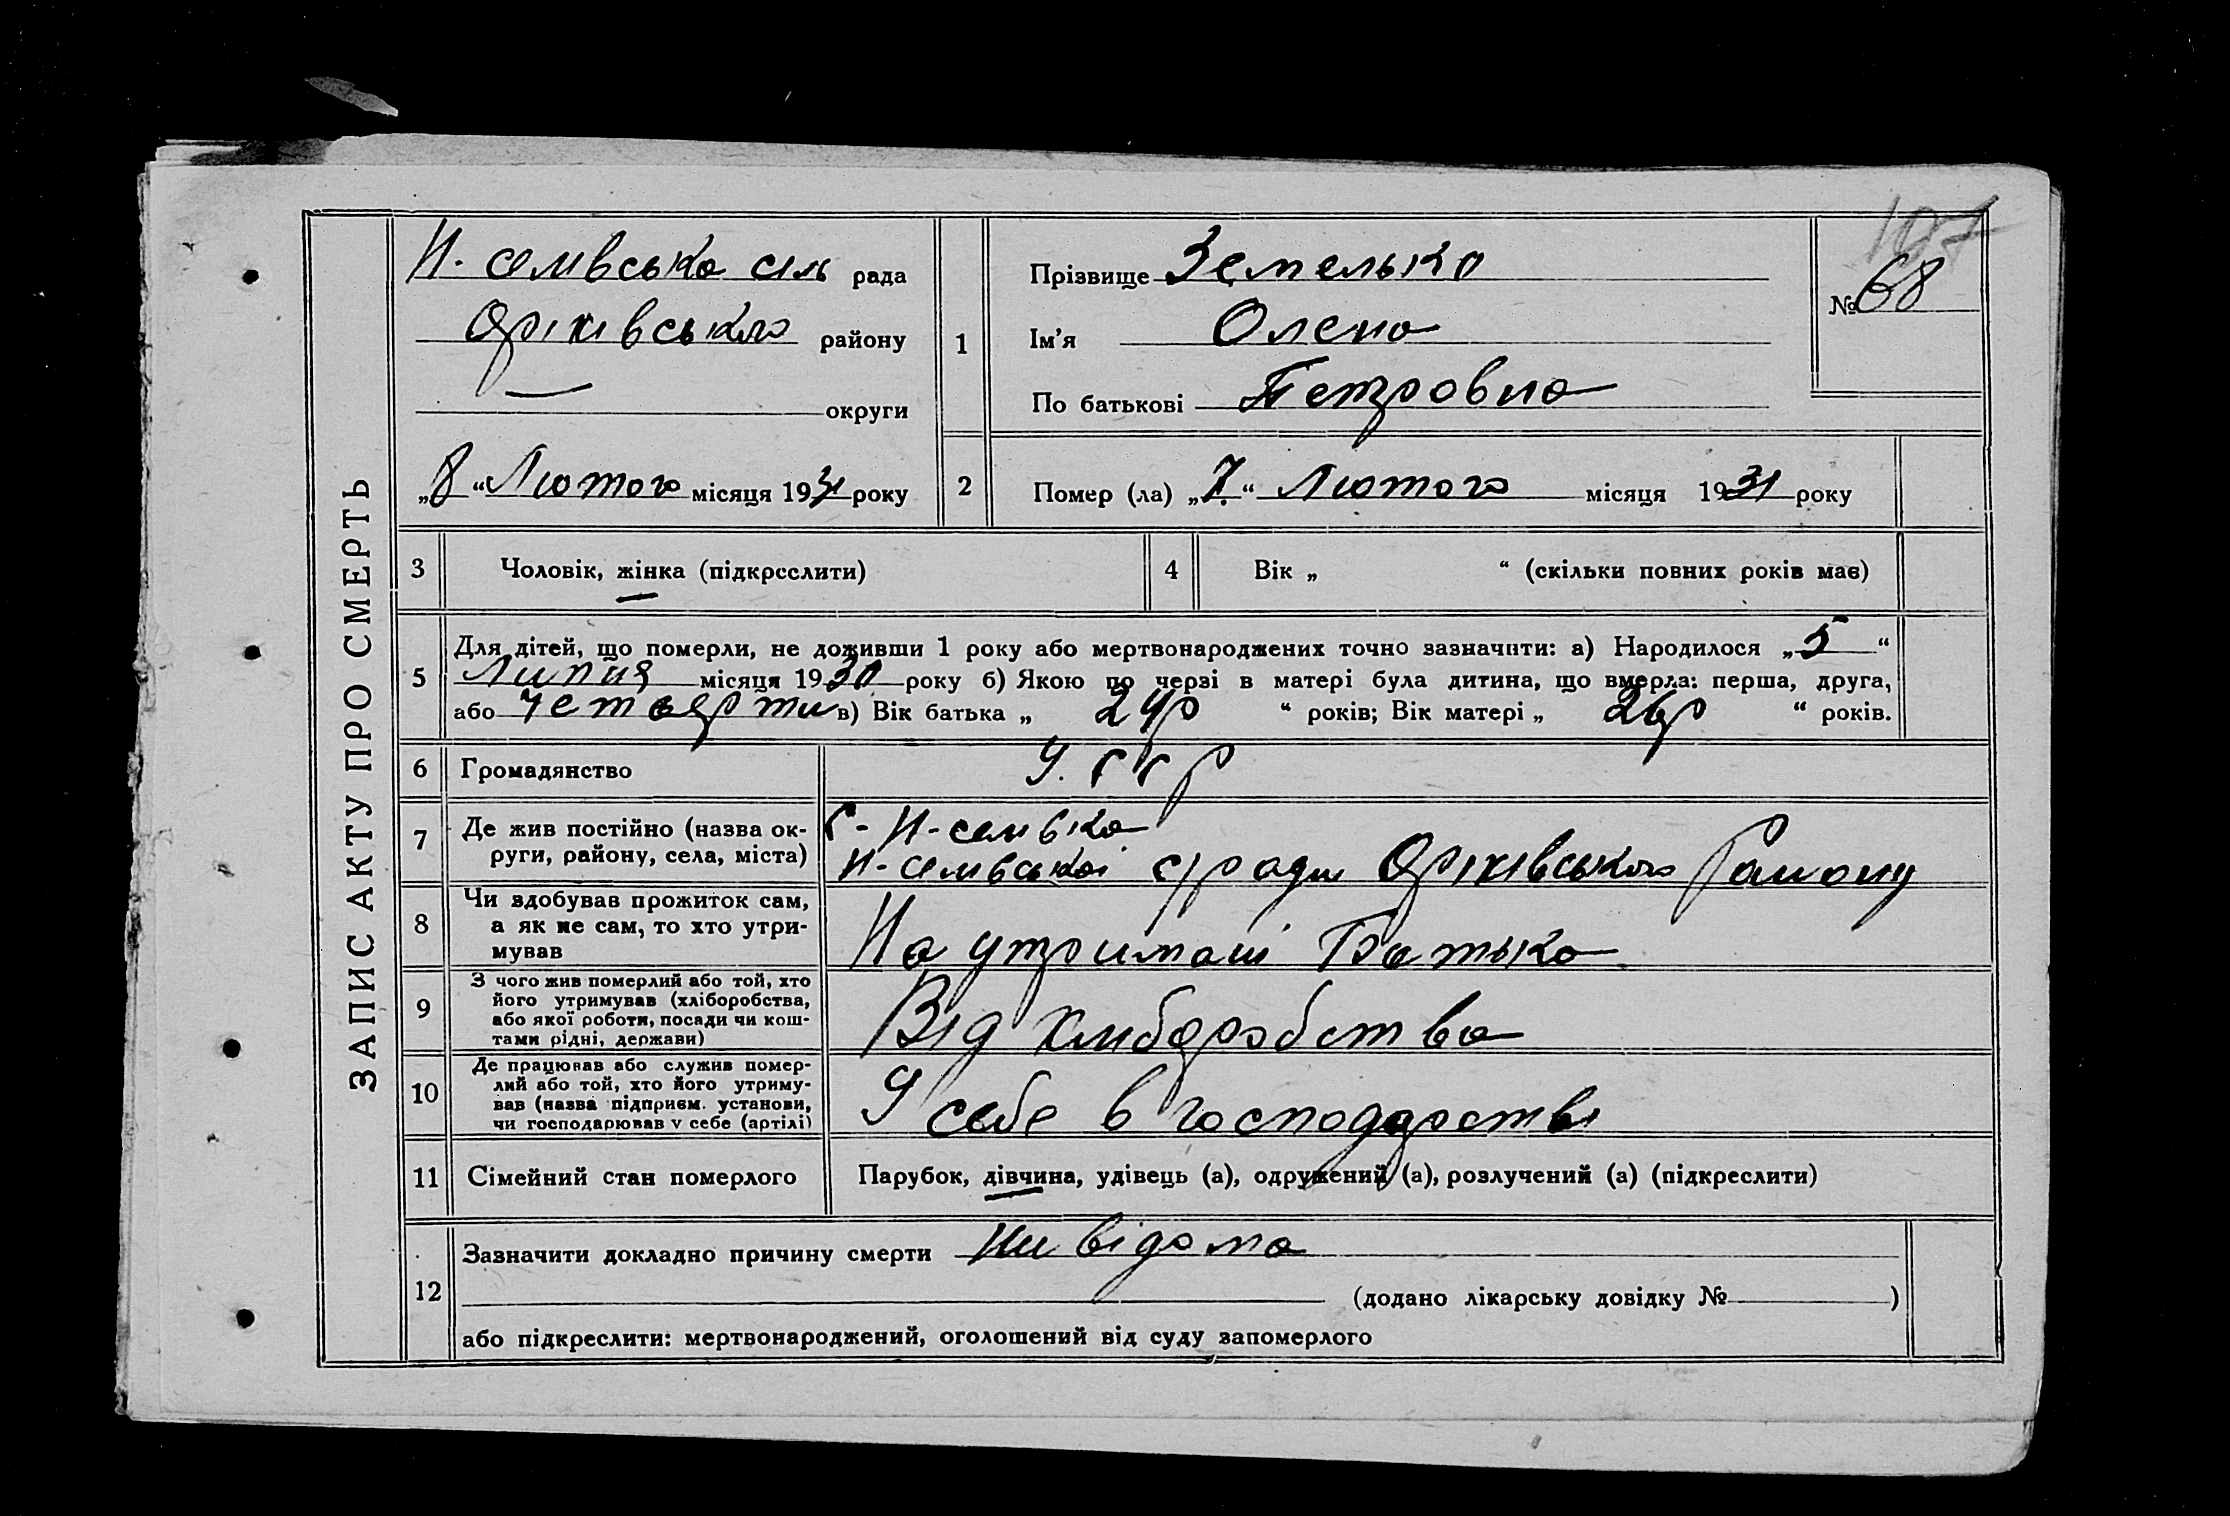 ЗАПИС АКТУ ПРО СМЕРТЬ
107
№ 68
Н. селивська сіль рада
Оріхівського району
— округи
„8“ Лютого місяця 1931 року
1
Прізвище Земелька
Ім'я Олена
По батькові Петровна
2
Помер (ла) „7.“ Лютого місяця 1931 року
3 Чоловік, жінка (підкреслити)
4 Вік „ “ (скільки повних років має)
5
Для дітей, що померли, не доживши 1 року або мертвонароджених точно зазначити: а) Народилося „5“
Липня місяця 1930 року б) Якою по черзі в матері була дитина, що вмерла: перша, друга,
або четверти в) Вік батька „ “ років; Вік матері „ 26р “ років.
6 Громадянство У.ССР
7 Де жив постійно (назва ок-
руги, району, села, міста)
С- Н-селивка
Н-селивської с/ради Оріхівського Району
8 Чи здобував прожиток сам,
а як не сам, то хто утри-
мував
На утримані Батька
9 З чого жив померлий або той, хто
його утримував (хліборобства,
або якої роботи, посади чи кош-
тами рідні, держави)
Від хліборобства
10 Де працював або служив помер-
лий або той, хто його утриму-
вав (назва підприєм. установи,
чи господарював у себе (артілі)
У себе в господарстві
11 Сімейний стан померлого Парубок, дівчина, удівець (а), одружений (а), розлучений (а) (підкреслити)
12
Зазначити докладно причину смерти Ни відома
(додано лікарську довідку № )
або підкреслити: мертвонароджений, оголошений від суду запомерлого